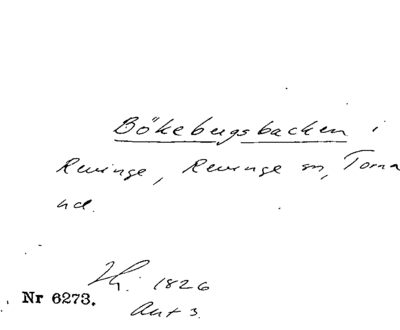 Bökebergsbacken i
Revinge, Revinge sn, Torna
hd.
1826
Nr 6273.
Akt 3.